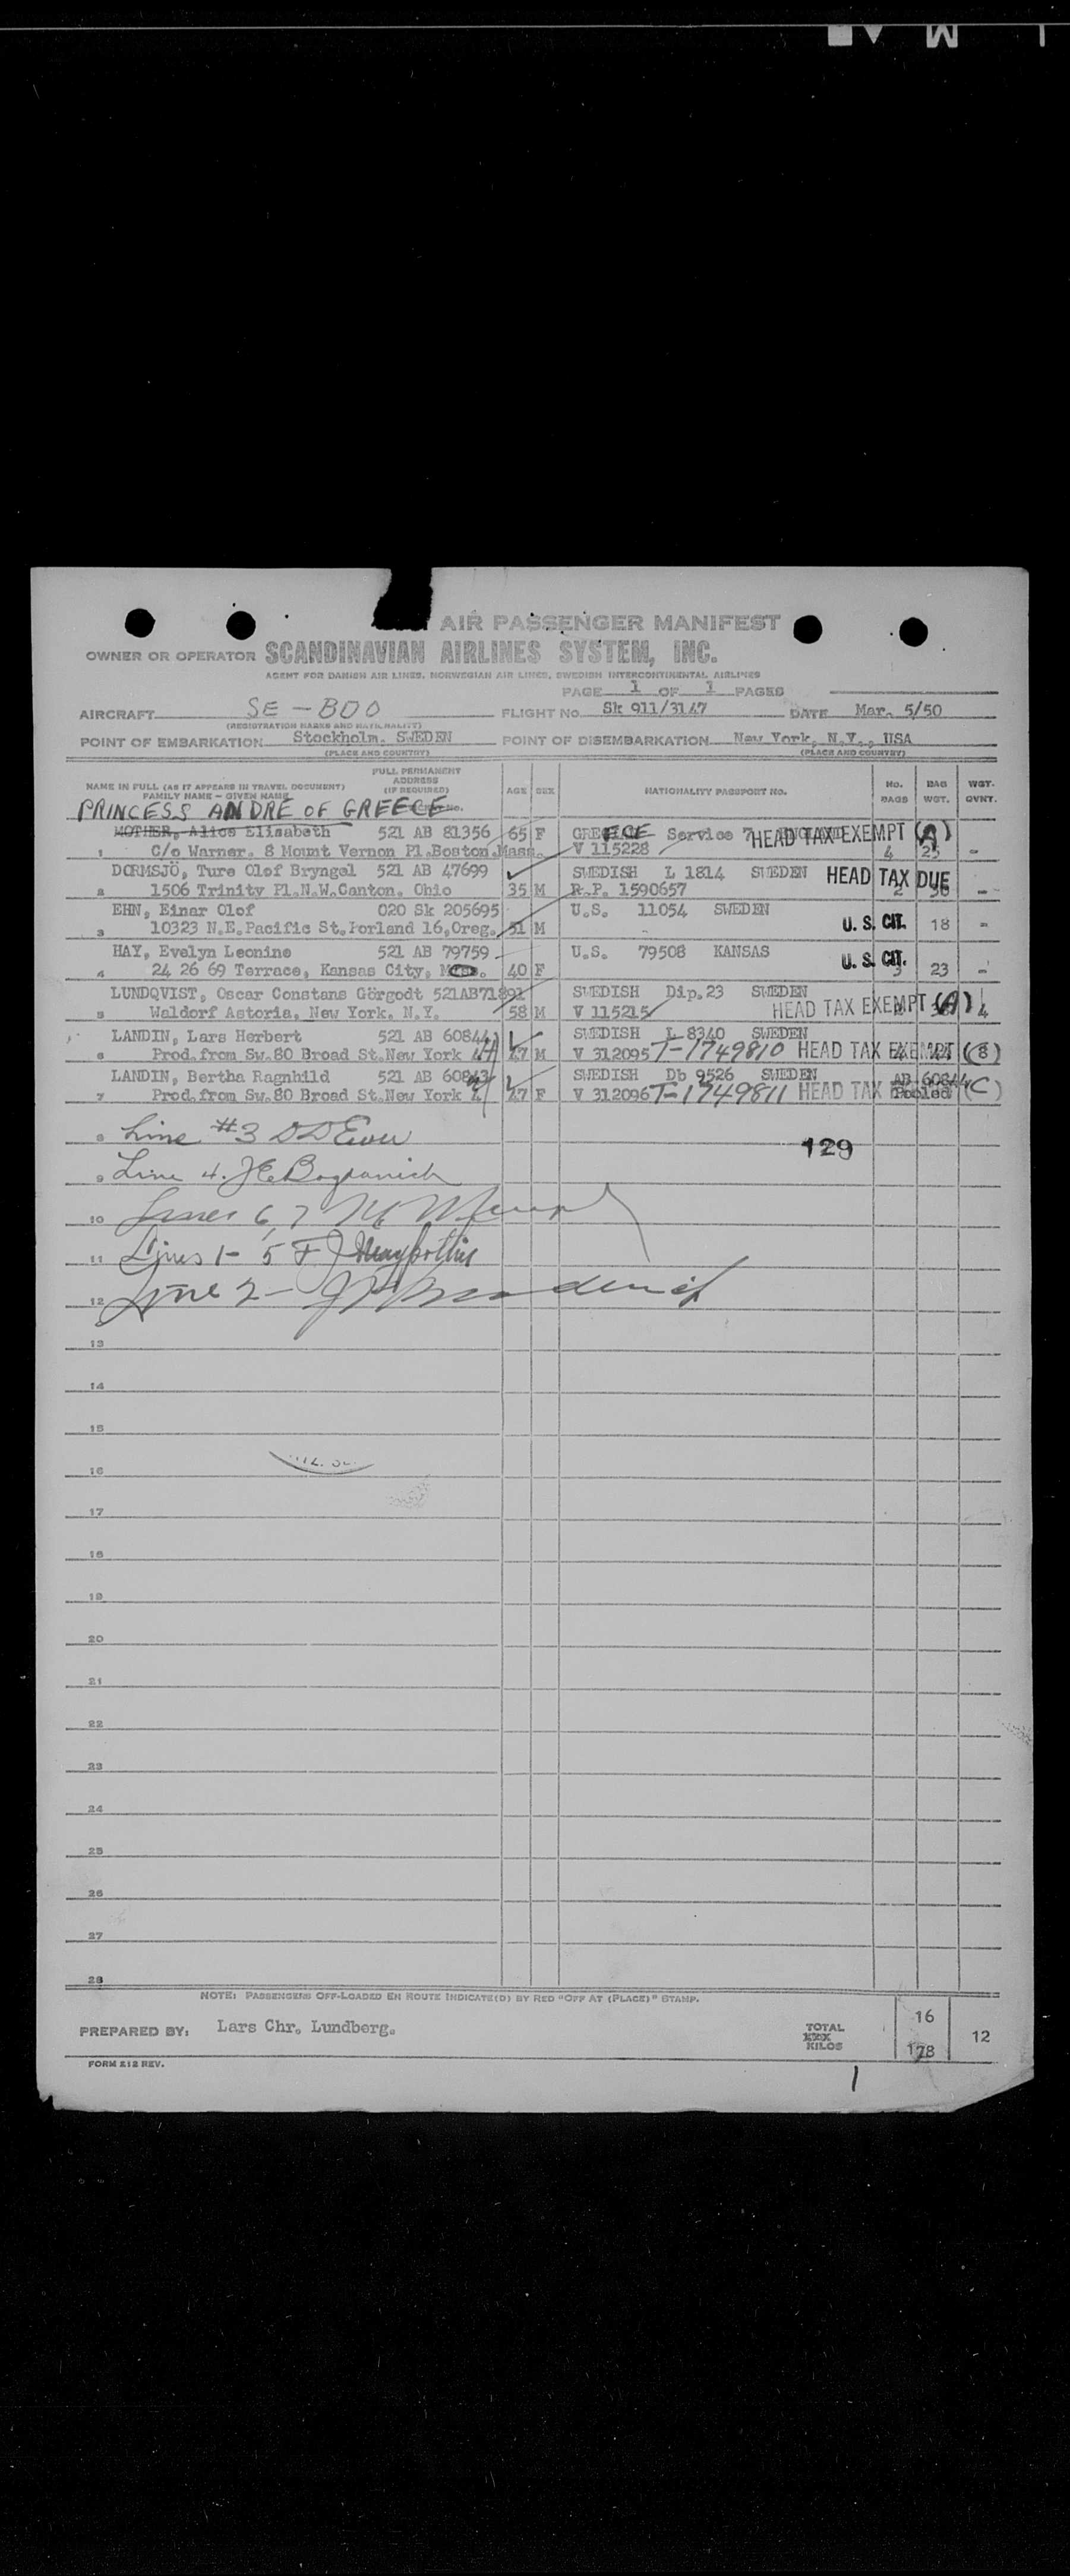 AIR PASSENGER MANIFEST
OWNER OR OPERATOR SCANDINAVIAN AIRLINES SYSTEM, INC.
AGENT FOR DANISH AIR LINES, NORWEGIAN AIR LINES, SWEDISH INTERCONTINENTAL AIRLINES
PAGE 1 OF 1 PAGES
AIRCRAFT SE-BDO FLIGHT No. Sk 911/3147 DATE Mar. 5/50
(REGISTRATION MARKS AND NATIONALITY)
POINT OF EMBARKATION Stockholm. SWEDEN POINT OF DISEMBARKATION New York, N.Y., USA
(PLACE AND COUNTRY) (PLACE AND COUNTRY)
NAME IN FULL (AS IT APPEARS IN TRAVEL DOCUMENT) FAMILY NAME - GIVEN NAME FULL PERMANENT ADDRESS (IF REQUIRED) AGE SEX NATIONALITY PASSPORT NO. No. BAGS BAG WGT. WGT. OVNT.
PRINCESS ANDRE OF GREECE
MOTHER, Alice Elisabeth 521 AB 81356 65 F GREECE Service 7 HEAD TAX EXEMPT (A)
1 C/o Warner. 8 Mount Vernon Pl.Boston.Mass. V 115228 4 25 -
DORMSJÖ, Ture Olof Bryngel 521 AB 47699 SWEDISH L 1814 SWEDEN HEAD TAX DUE
2 1506 Trinity Pl.N.W.Canton. Ohio 35 M R.P. 1590657 2 -
EHN, Einar Olof 020 Sk 205695 U.S. 11054 SWEDEN
3 10323 N.E.Pacific St.Porland 16,Oreg. 51 M U.S. CIT. 18 -
HAY, Evelyn Leonine 521 AB 79759 U.S. 79508 KANSAS
4 24 26 69 Terrace, Kansas City, 40 F U.S. CIT. 3 23 -
LUNDQVIST, Oscar Constans Görgodt 521AB71891 SWEDISH Dip.23 SWEDEN
5 Waldorf Astoria, New York, N.Y. 58 M V 115215 HEAD TAX EXEMPT (A) 4
LANDIN, Lars Herbert 521 AB 60844 SWEDISH L 8340 SWEDEN
6 Prod.from Sw.80 Broad St.New York 47 M V 312095 T-1749810 HEAD TAX EXEMPT (B)
LANDIN, Bertha Ragnhild 521 AB 60843 SWEDISH Db 9526 SWEDEN AB 60844
7 Prod.from Sw.80 Broad St.New York 47 F V 312096 T-1749811 HEAD TAX Pooled (C)
8 Line #3 129
9 Line 4. J E Bogdanich
10 Lines 6, 7
11 Lines 1- 5 F J
12 Line 2-
13
14
15
16
17
18
19
20
21
22
23
24
25
26
27
28
NOTE: PASSENGERS OFF-LOADED EN ROUTE INDICATE(D) BY RED "OFF AT (PLACE)" STAMP.
PREPARED BY: Lars Chr. Lundberg. TOTAL KILOS 16 178 12
FORM 212 REV.
1